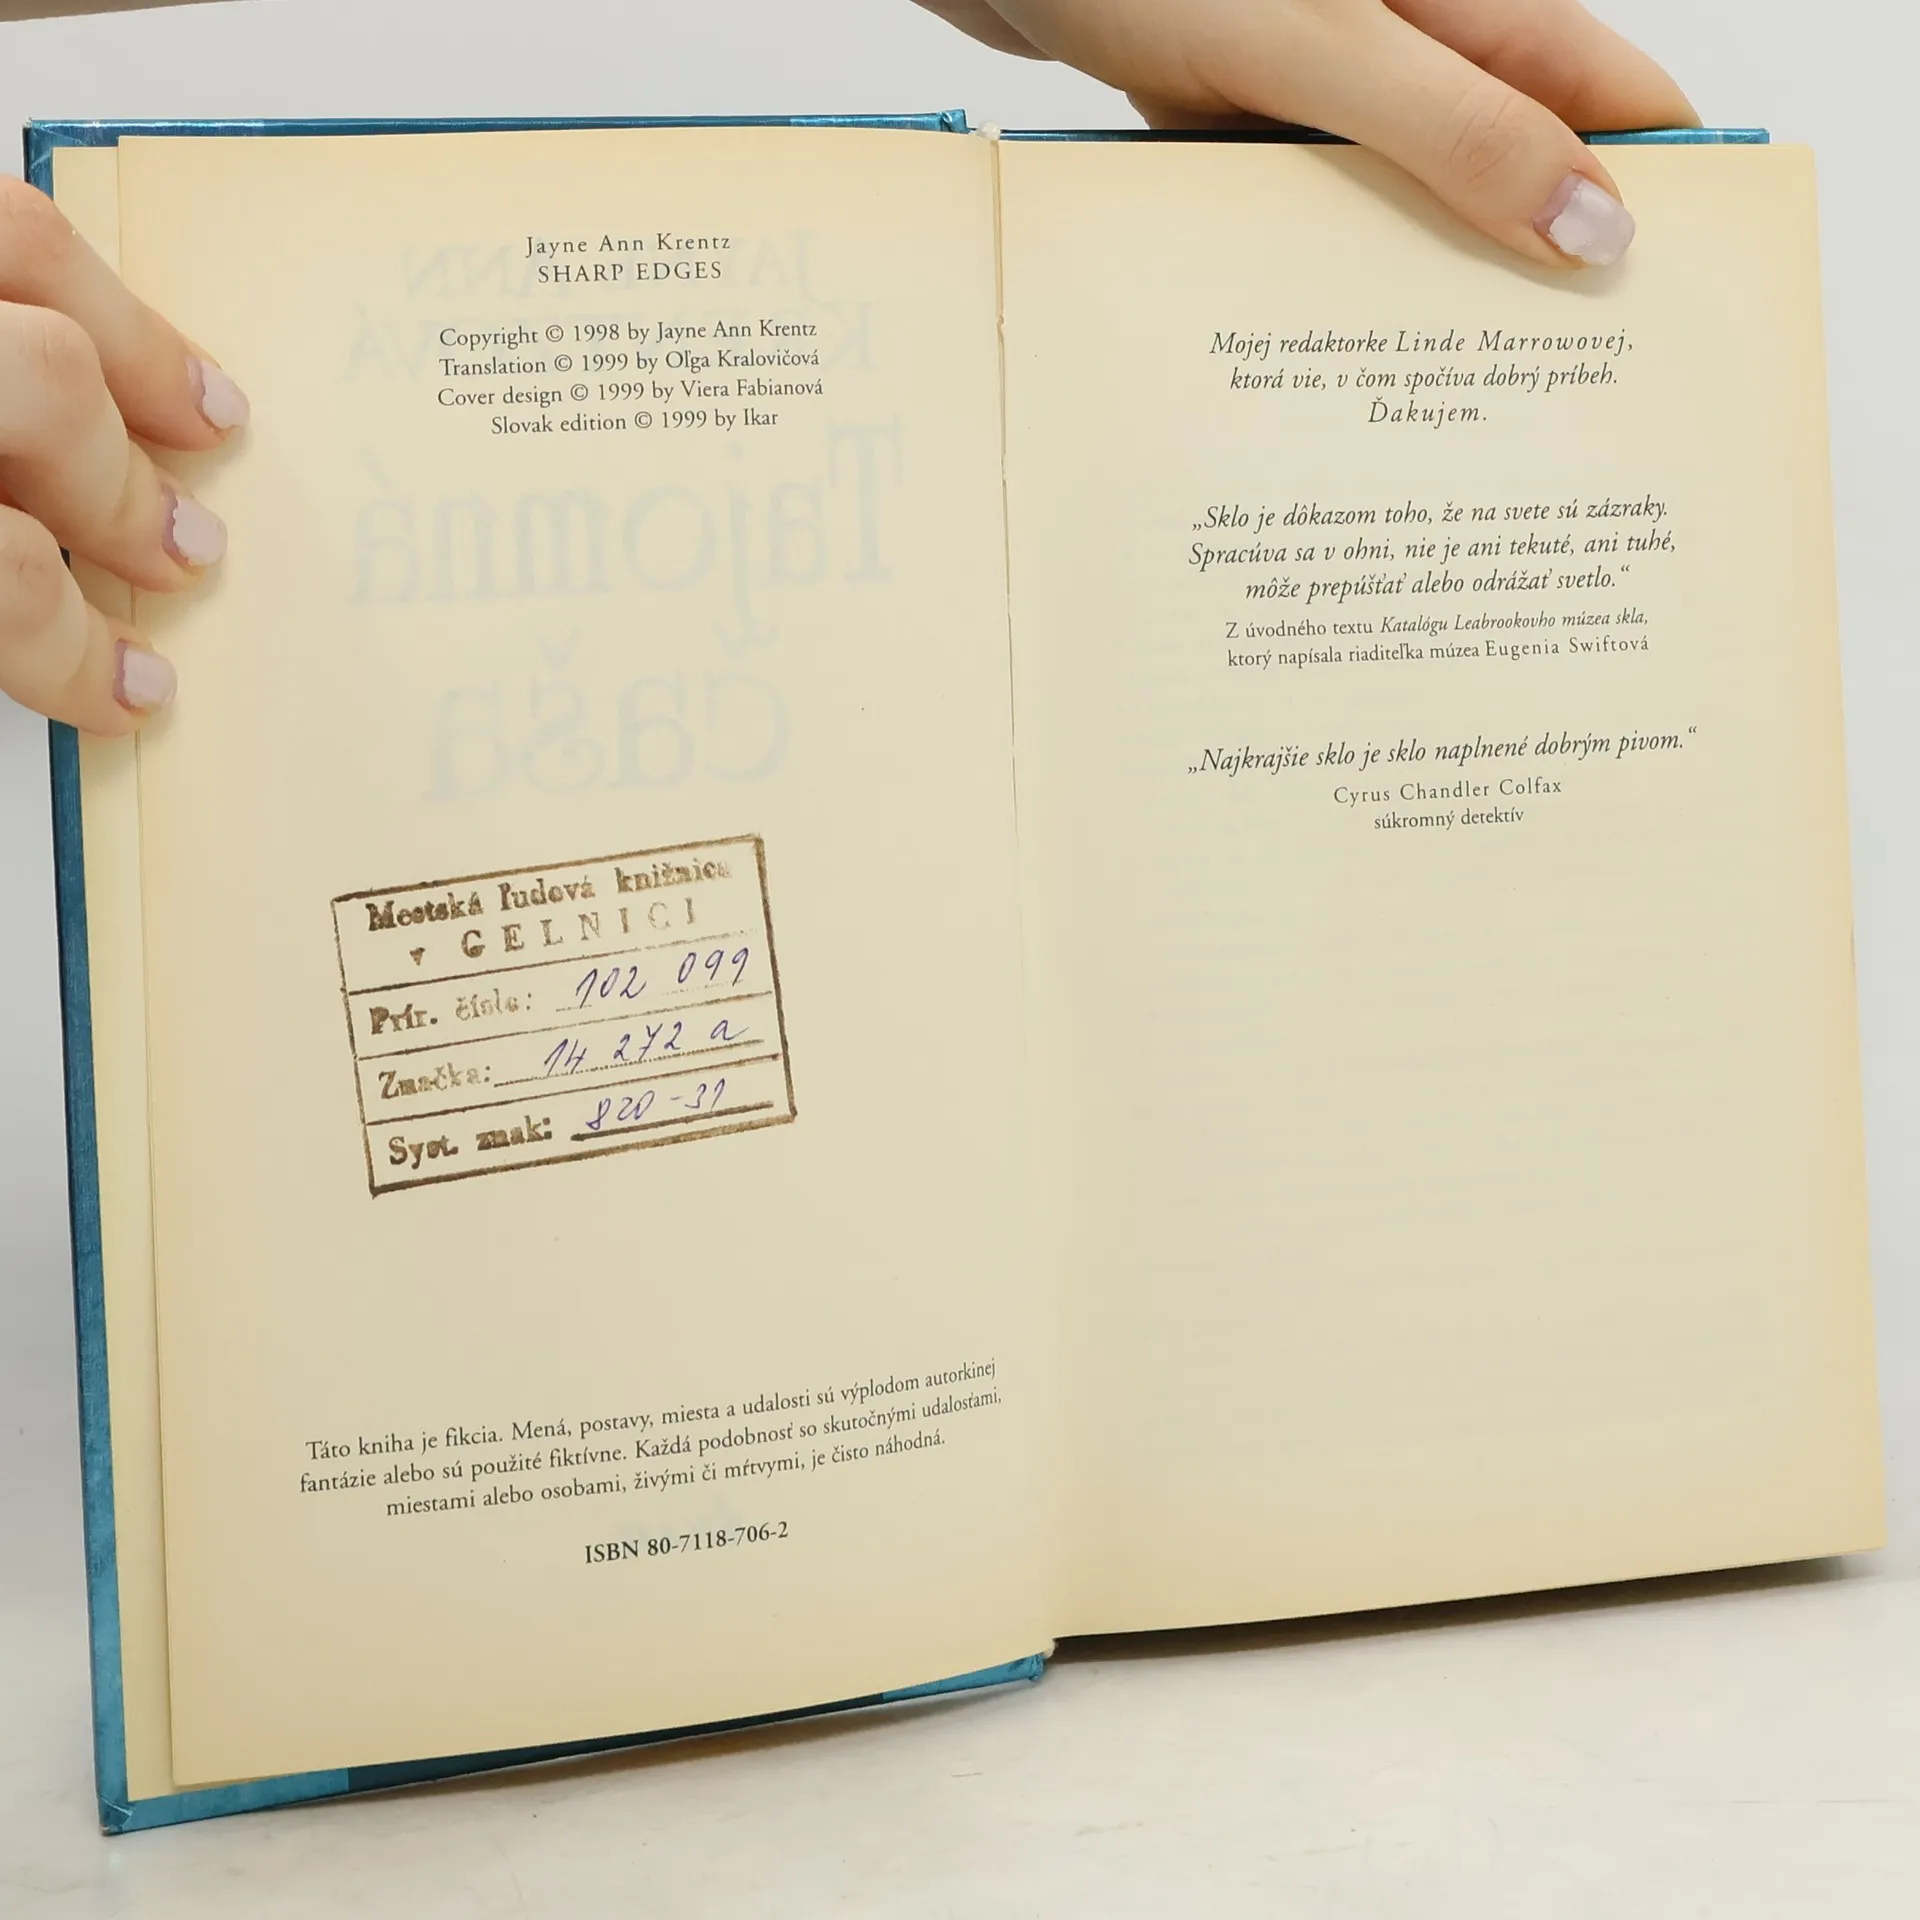 Jayne Ann Krentz
SHARP EDGES
Copyright © 1998 by Jayne Ann Krentz
Translation © 1999 by Oľga Kralovičová
Cover design © 1999 by Viera Fabianová
Slovak edition © 1999 by Ikar
Tajomná
čaša
Mestská ľudová knižnica
v GELNICI
Prír. číslo: 102 099
Značka: 14 272 a
Syst. znak: 820-31
Táto kniha je fikcia. Mená, postavy, miesta a udalosti sú výplodom autorkinej
fantázie alebo sú použité fiktívne. Každá podobnosť so skutočnými udalosťami,
miestami alebo osobami, živými či mŕtvymi, je čisto náhodná.
ISBN 80-7118-706-2
Mojej redaktorke Linde Marrowovej,
ktorá vie, v čom spočíva dobrý príbeh.
Ďakujem.
„Sklo je dôkazom toho, že na svete sú zázraky.
Spracúva sa v ohni, nie je ani tekuté, ani tuhé,
môže prepúšťať alebo odrážať svetlo.“
Z úvodného textu Katalógu Leabrookovho múzea skla,
ktorý napísala riaditeľka múzea Eugenia Swiftová
„Najkrajšie sklo je sklo naplnené dobrým pivom.“
Cyrus Chandler Colfax
súkromný detektív